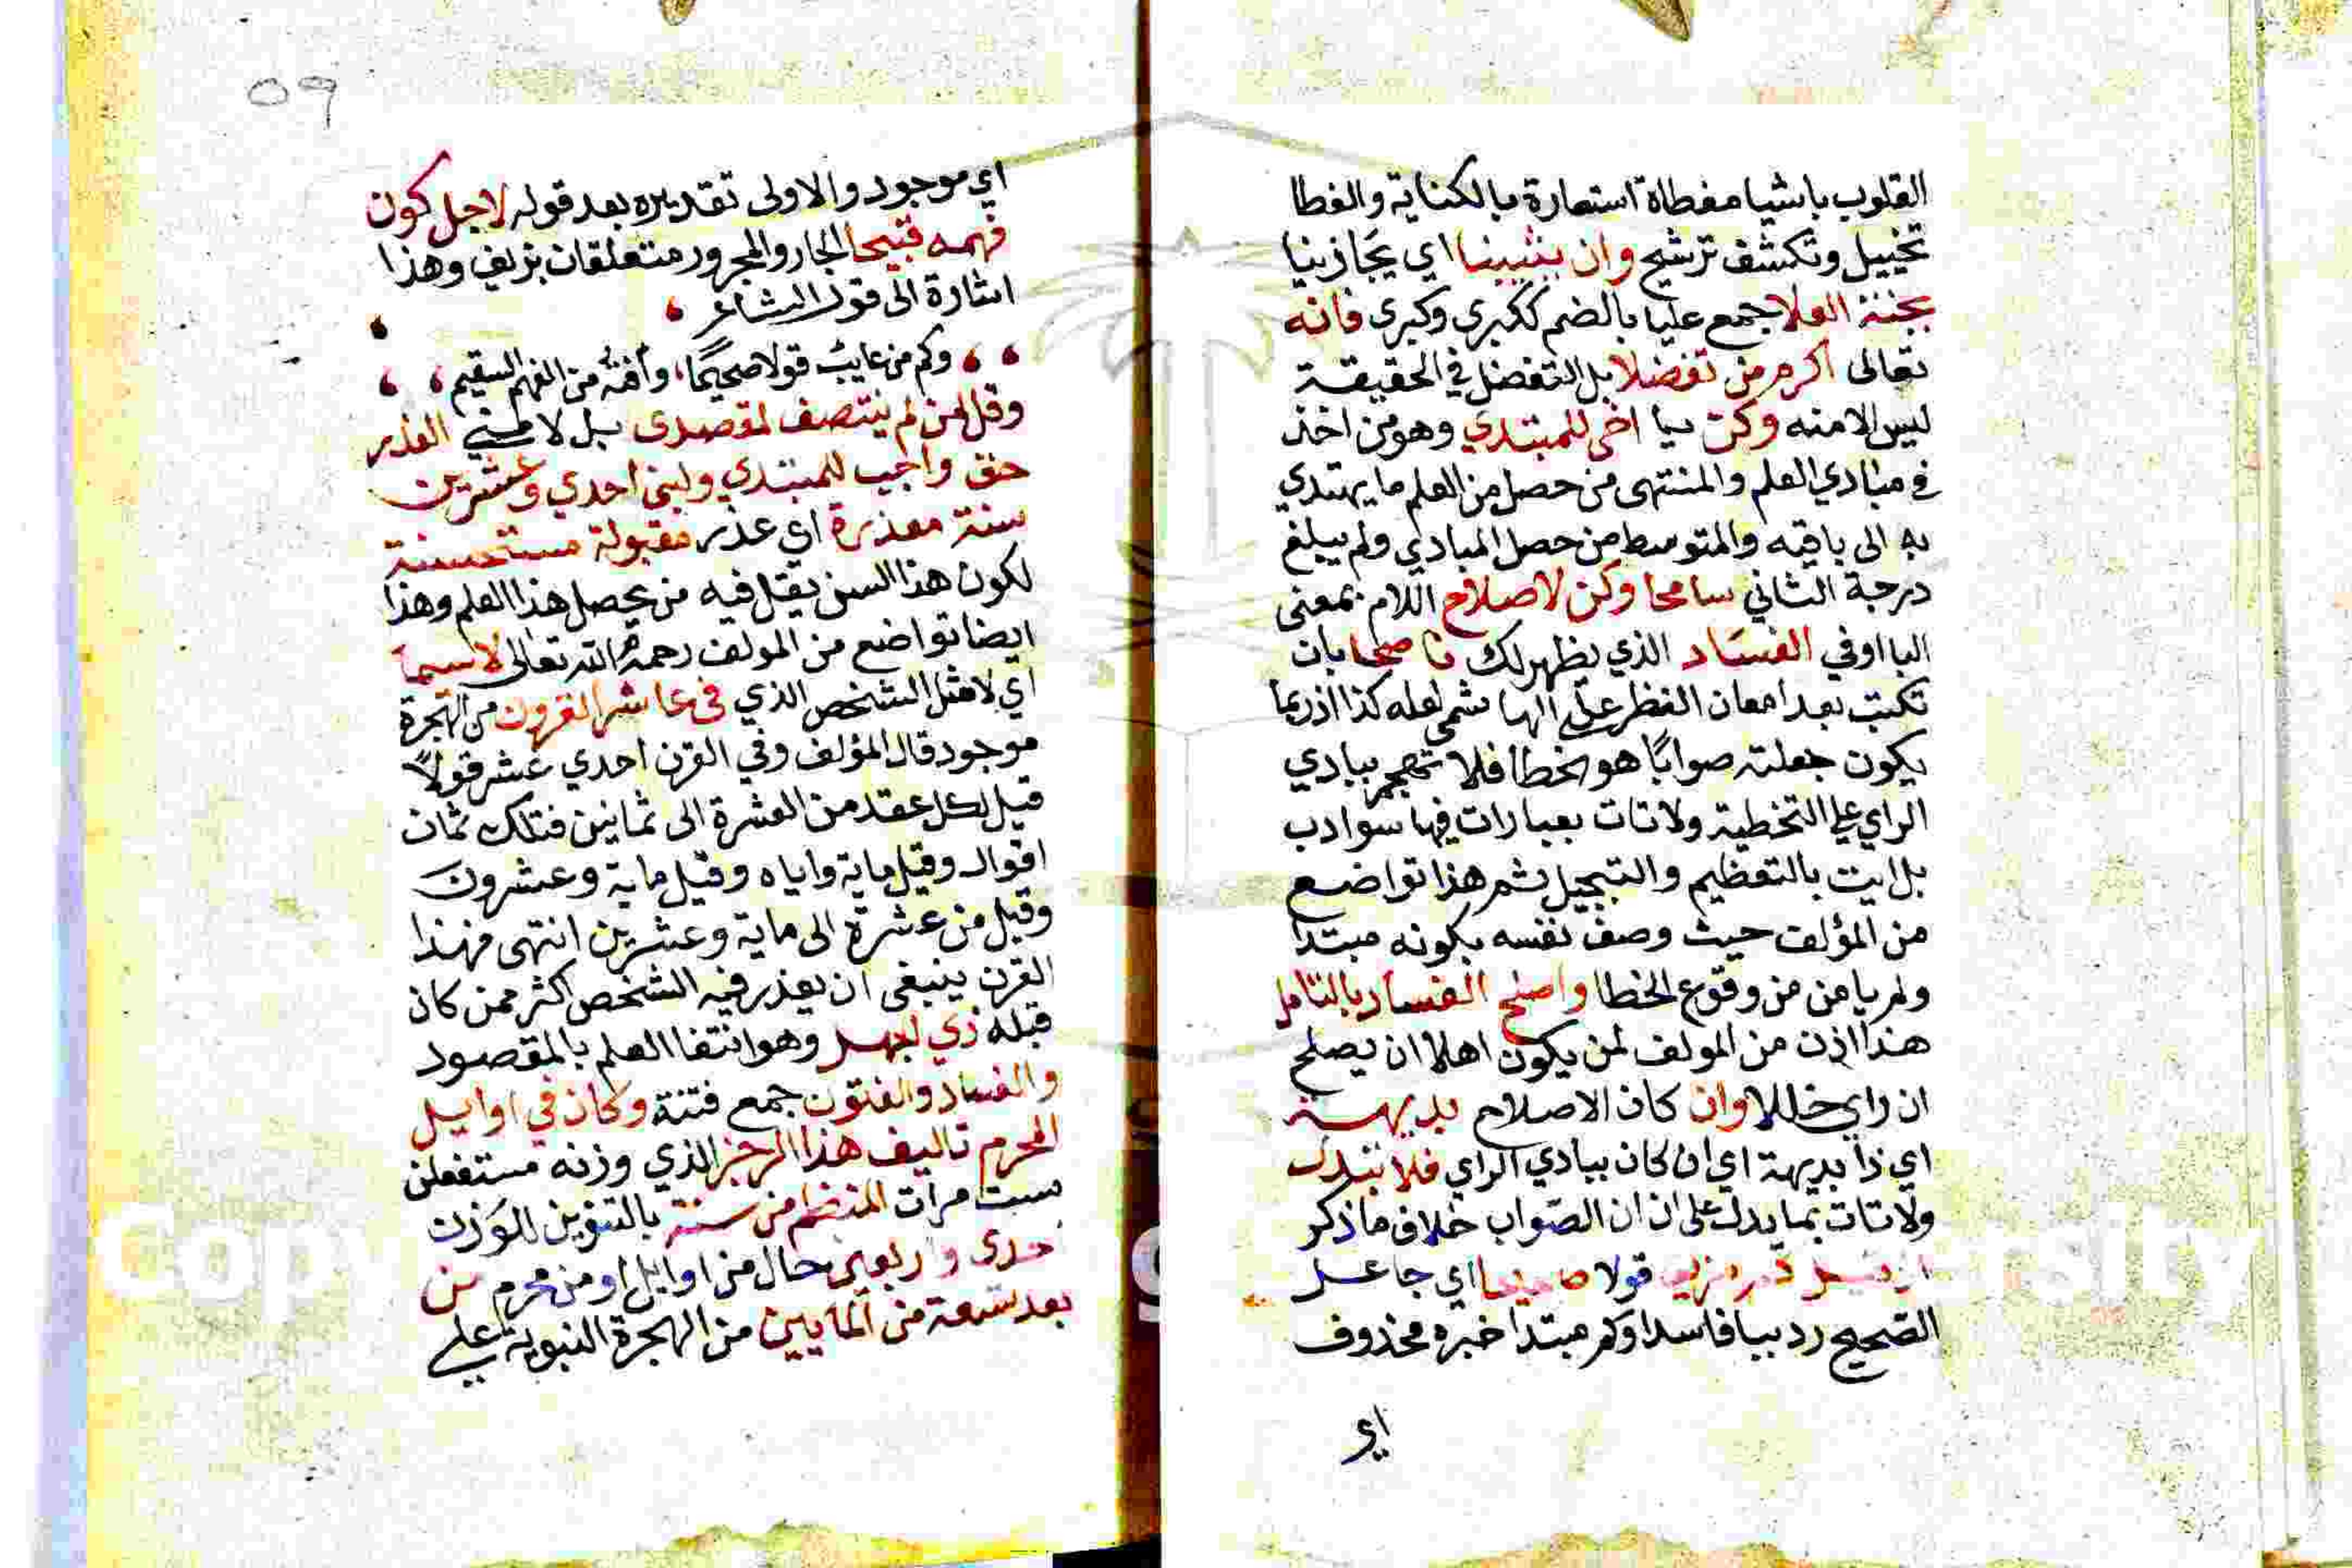 القلوب باشيا مغطاة استعارة بالكناية والغطا
تخييل وتكشف ترشيح وان يثيبنا اي يجازينا
بجنة العلا جمع عليا بالضم ككبرى وكبرى فانه
تعالى اكرم من تفضلا بل التفضل في الحقيقة
ليس الامنه وكن يا اخي للمبتدي وهو من اخذ
في مبادي العلم والمنتهى من حصل من العلم ما يهتدي
به الى باقيه والمتوسط من حصل المبادي ولم يبلغ
درجة الثاني سامحا وكن لاصلاح اللام بمعنى
البا اوفي الفساد الذي يظهر لك ناصحا بان
تكتب بعد امعان النظر على الهامش لعله كذا اذ ربما
يكون جعلته صوابا هو الخطا فلا تهجم ببادي
الراي على التخطية ولا تات بعبارات فيها سوادب
بل ايت بالتعظيم والتبجيل ثم هذا تواضع
من المؤلف حيث وصف نفسه بكونه مبتدا
ولم يامن من وقوع الخطا واصلح الفساد بالتامل
هذا اذن من المولف لمن يكون اهلا ان يصلح
ان راي خللا وان كان الاصلاح بديهة
اي ذا بديهة اي ان كان ببادي الراي فلا تبدل
ولا تات بما يدل على ان الصواب خلاف ما ذكر
اذ قيل كم مزيف قولا صحيحا اي جاعل
الصحيح رديبا فاسدا وكم مبتدا خبره محذوف
اي
٥٩
اي موجود والاولى تقديره بعد قوله لاجل كون
فهمه قبيحا الجار والمجرور متعلقان بزيف وهذا
اشارة الى قول الشاعر
وكم من عايب قولا صحيحا، وافته من الفهم السقيم،
وقل لمن لم ينتصف لمقصدى بل لامني العذر
حق واجب للمبتدي ولبني احدي وعشرين
سنة معذرة اي عذر مقبولة مستحسنة
لكون هذا السن يقل فيه من يحصل هذا العلم وهذا
ايضا تواضع من المولف رحمه الله تعالى لاسيما
اي لا مثل الشخص الذي في عاشر القرون من الهجرة
موجود قال المؤلف وفي القرن احدي عشر قولا
قيل لكل عقد من العشرة الى ثمانين فتلك ثمان
اقوال وقيل ماية واياه وقيل ماية وعشرون
وقيل من عشرة الى ماية وعشرين انتهى فهذا
القرن ينبغي ان يعذر فيه الشخص اكثر ممن كان
قبله ذي الجهل وهو انتفا العلم بالمقصود
والفساد والفتون جمع فتنة وكان في اوايل
المحرم تاليف هذا الرجز الذي وزنه مستفعلن
ست مرات المنظم من سنة بالتنوين للوزن
حدى واربعين حال من اوايل او من محرم من
بعد تسعة من المايين من الهجرة النبوية على